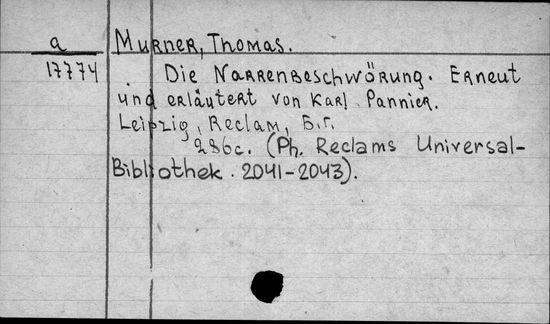 a
17774
Murner, Thomas.
Die Narrenbeschwörung. Erneut
und erläutert von Karl Pannier.
Leipzig, Reclam, б.г.
286с. (Ph. Reclams Universal-
Bibliothek. 2041-2043).